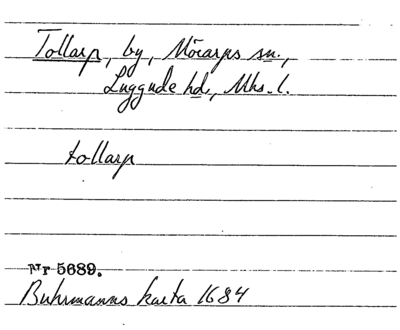 Tollarp, by, Mörarps sn.,
Luggude hd., Mhs. l.
tollarp
Nr 5689.
Buhrmanns karta 1684